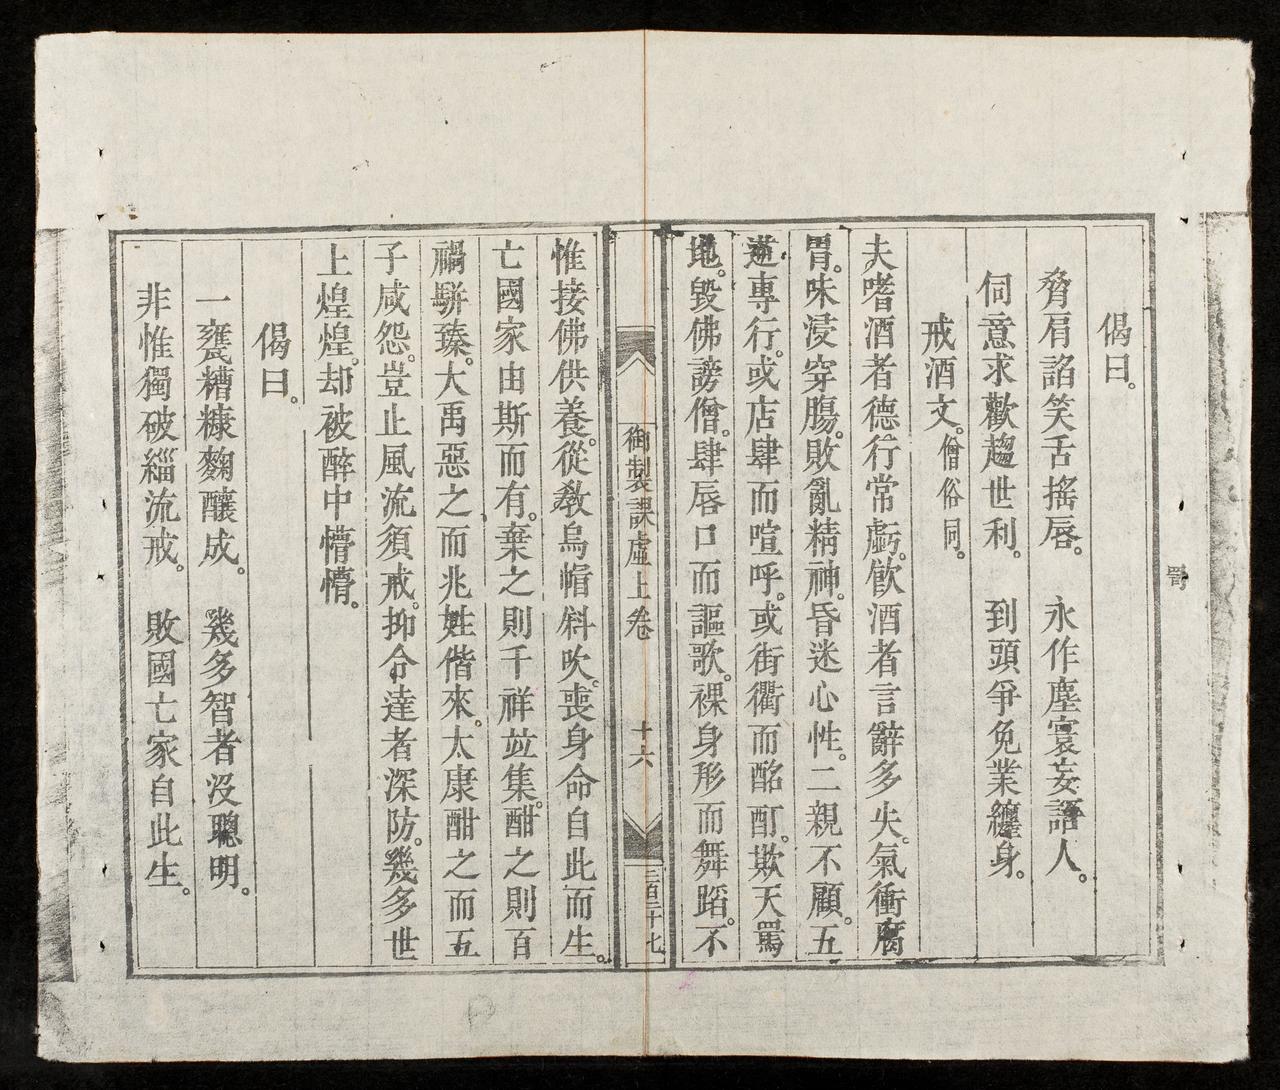 偈曰。
脅肩諂笑舌搖唇。 永作塵寰妄語人。
伺意求歡趨世利。 到頭爭免業纏身。
戒酒文。僧俗同。
夫嗜酒者德行常虧。飮酒者言辭多失。氣衝腐
胃。味浸穿腸。敗亂精神。昏迷心性。二親不顧。五
逆專行。或店肆而喧呼。或街衢而酩酊。欺天罵
地。毀佛謗僧。肆唇口而謳歌。裸身形而舞蹈。不
御製課虛上卷 十六 三百三十七
惟接佛供養。從敎烏帽斜吹。喪身命自此而生。
亡國家由斯而有。棄之則千祥竝集。酣之則百
禍駢臻。大禹惡之而兆姓偕來。太康酣之而五
子咸怨。豈止風流須戒。抑令達者深防。幾多世
上煌煌。却被醉中懵懵。
偈曰。
一甕糟糠麴釀成。 幾多智者沒聰明。
非惟獨破緇流戒。 敗國亡家自此生。